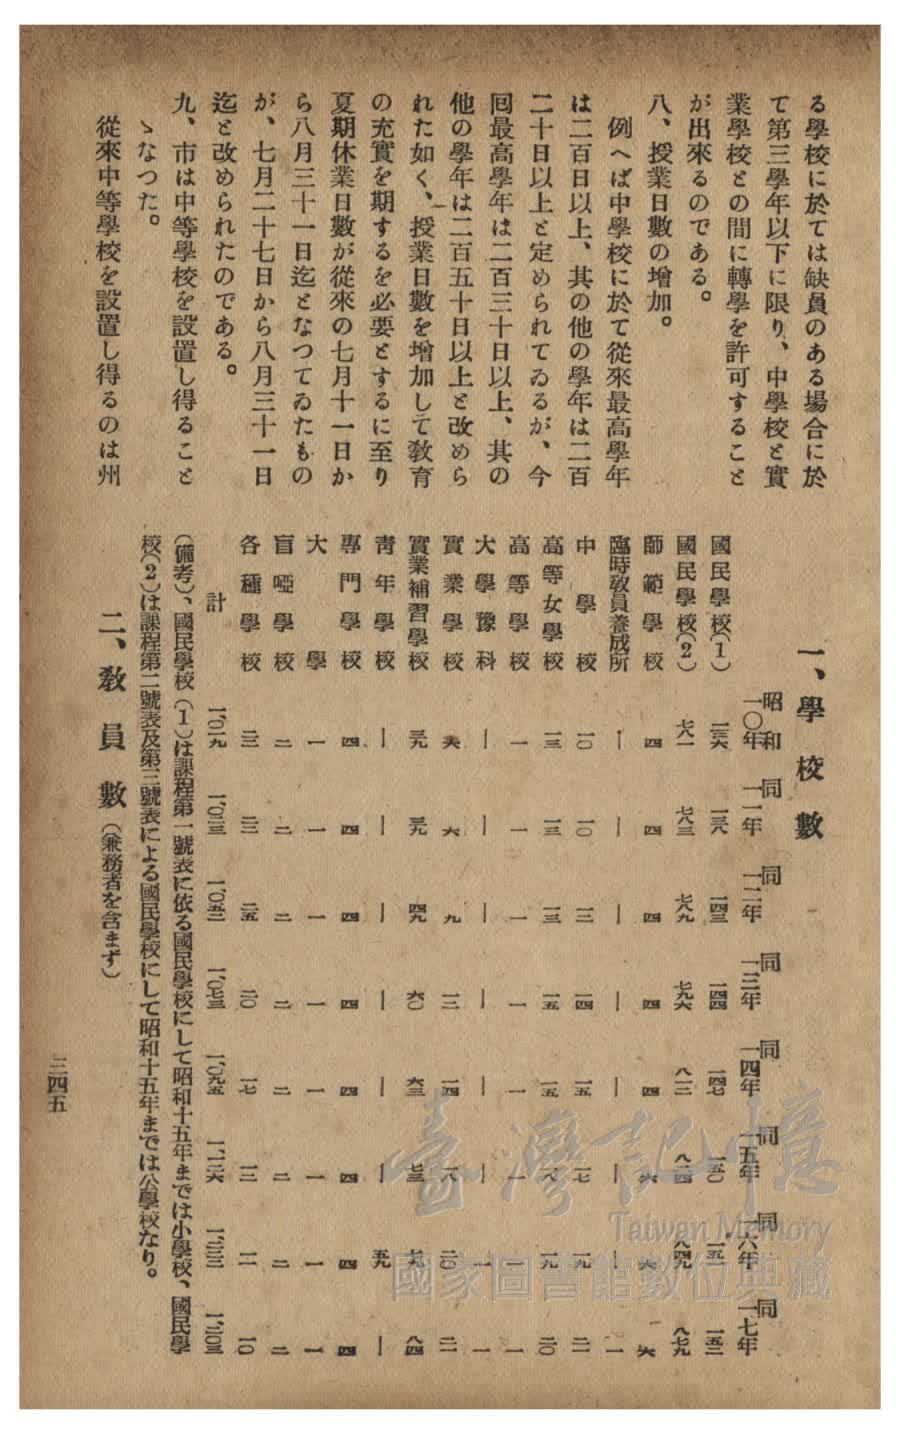 る學校に於ては缺員のある場合に於
て第三學年以下に限り、中學校と實
業學校との間に轉學を許可すること
が出來るのである。
八、授業日數の增加。
例へば中學校に於て從來最高學年
は二百日以上、其の他の學年は二百
二十日以上と定められてゐるが、今
囘最高學年は二百三十日以上、其の
他の學年は二百五十日以上と改めら
れた如く、授業日數を增加して敎育
の充實を期するを必要とするに至り
夏期休業日數が從來の七月十一日か
ら八月三十一日迄となつてゐたもの
が、七月二十七日から八月三十一日
迄と改められたのである。
九、市は中等學校を設置し得ること
ゝなつた。
從來中等學校を設置し得るのは州
一、學校數
昭和一〇年 同一一年 同一二年 同一三年 同一四年 同一五年 同一六年 同一七年
國民學校(1) 一三六 一三八 一四三 一四四 一四七 一五〇 一五一 一五二
國民學校(2) 七八一 七八三 七八九 七九六 八一二 八二四 八四九 八七九
師範學校 四 四 四 四 四 六 六 六
臨時敎員養成所 ― ― ― ― ― ― ― 一
中學校 一〇 一〇 一二 一四 一五 一七 一九 二一
高等女學校 一三 一三 一三 一五 一五 一八 一九 二〇
高等學校 一 一 一 一 一 一 一 一
大學豫科 ― ― ― ― ― ― 一 一
實業學校 六 六 九 一二 一四 一八 二〇 二一
實業補習學校 三九 三九 四九 六〇 六三 七三 七九 八四
靑年學校 ― ― ― ― ― ― 五九 ―
專門學校 四 四 四 四 四 四 四 四
大學 一 一 一 一 一 一 一 一
盲啞學校 二 二 二 二 二 二 二 二
各種學校 二二 二二 二五 二〇 一七 一二 一一 一〇
計 一、〇一九 一、〇二三 一、〇五二 一、〇七三 一、〇九五 一、一二六 一、二二二 一、二〇三
(備考)、國民學校(1)は課程第一號表に依る國民學校にして昭和十五年までは小學校、國民學
校(2)は課程第二號表及第三號表による國民學校にして昭和十五年までは公學校なり。
二、敎員數(兼務者を含まず)
三四五
臺灣記憶
Taiwan Memory
國家圖書館數位典藏